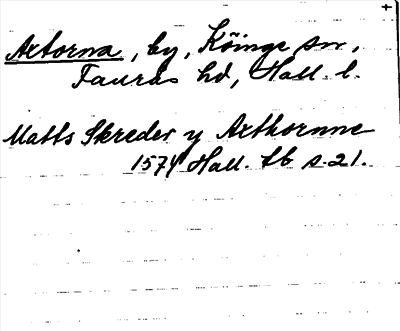 Axtorna, by, Köinge sn,
Faurås hd, Hall. l.
Matts Skreder y Axthornne
1574 Hall. tb s. 21.